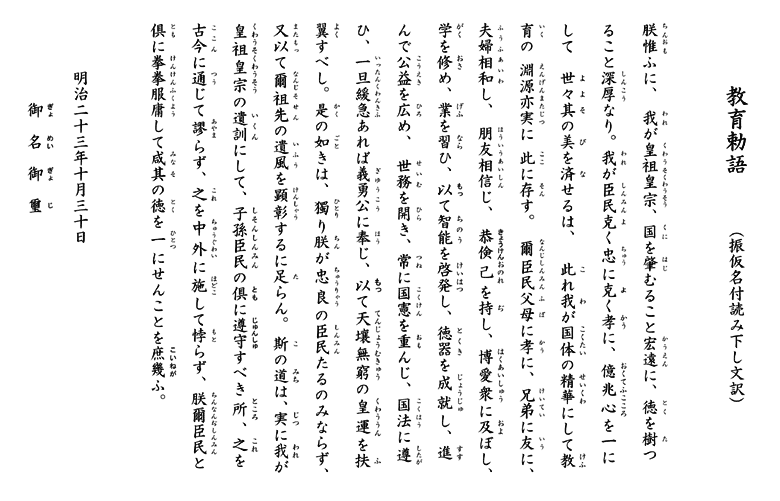 教育勅語　（振仮名付読み下し文訳）
朕惟ふに、我が皇祖皇宗、国を肇むること宏遠に、徳を樹つ
ること深厚なり。我が臣民克く忠に克く孝に、億兆心を一に
して　世々其の美を済せるは、此れ我が国体の精華にして教
育の　淵源亦実に　此に存す。　爾臣民父母に孝に、兄弟に友に、
夫婦相和し、朋友相信じ、恭倹己を持し、博愛衆に及ぼし、
学を修め、業を習ひ、以て智能を啓発し、徳器を成就し、進
んで公益を広め、　世務を開き、常に国憲を重んじ、国法に遵
ひ、一旦緩急あれば義勇公に奉じ、以て天壌無窮の皇運を扶
翼すべし。是の如きは、獨り朕が忠良の臣民たるのみならず、
又以て爾祖先の遺風を顕彰するに足らん。　斯の道は、実に我が
皇祖皇宗の遺訓にして、子孫臣民の倶に遵守すべき所、之を
古今に通じて謬らず、之を中外に施して悖らず、朕爾臣民と
倶に拳拳服庸して咸其の徳を一にせんことを庶幾ふ。
明治二十三年十月三十日
御名御璽